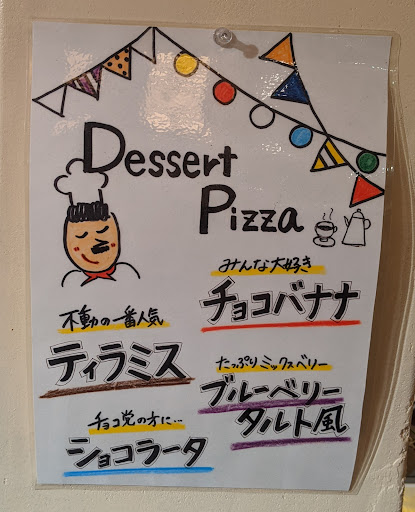 Dessert
Pizza
みんな大好き
チョコバナナ
不動の一番人気
ティラミス
たっぷりミックスベリー
ブルーベリー
タルト風
チョコ党の方に…
ショコラータ